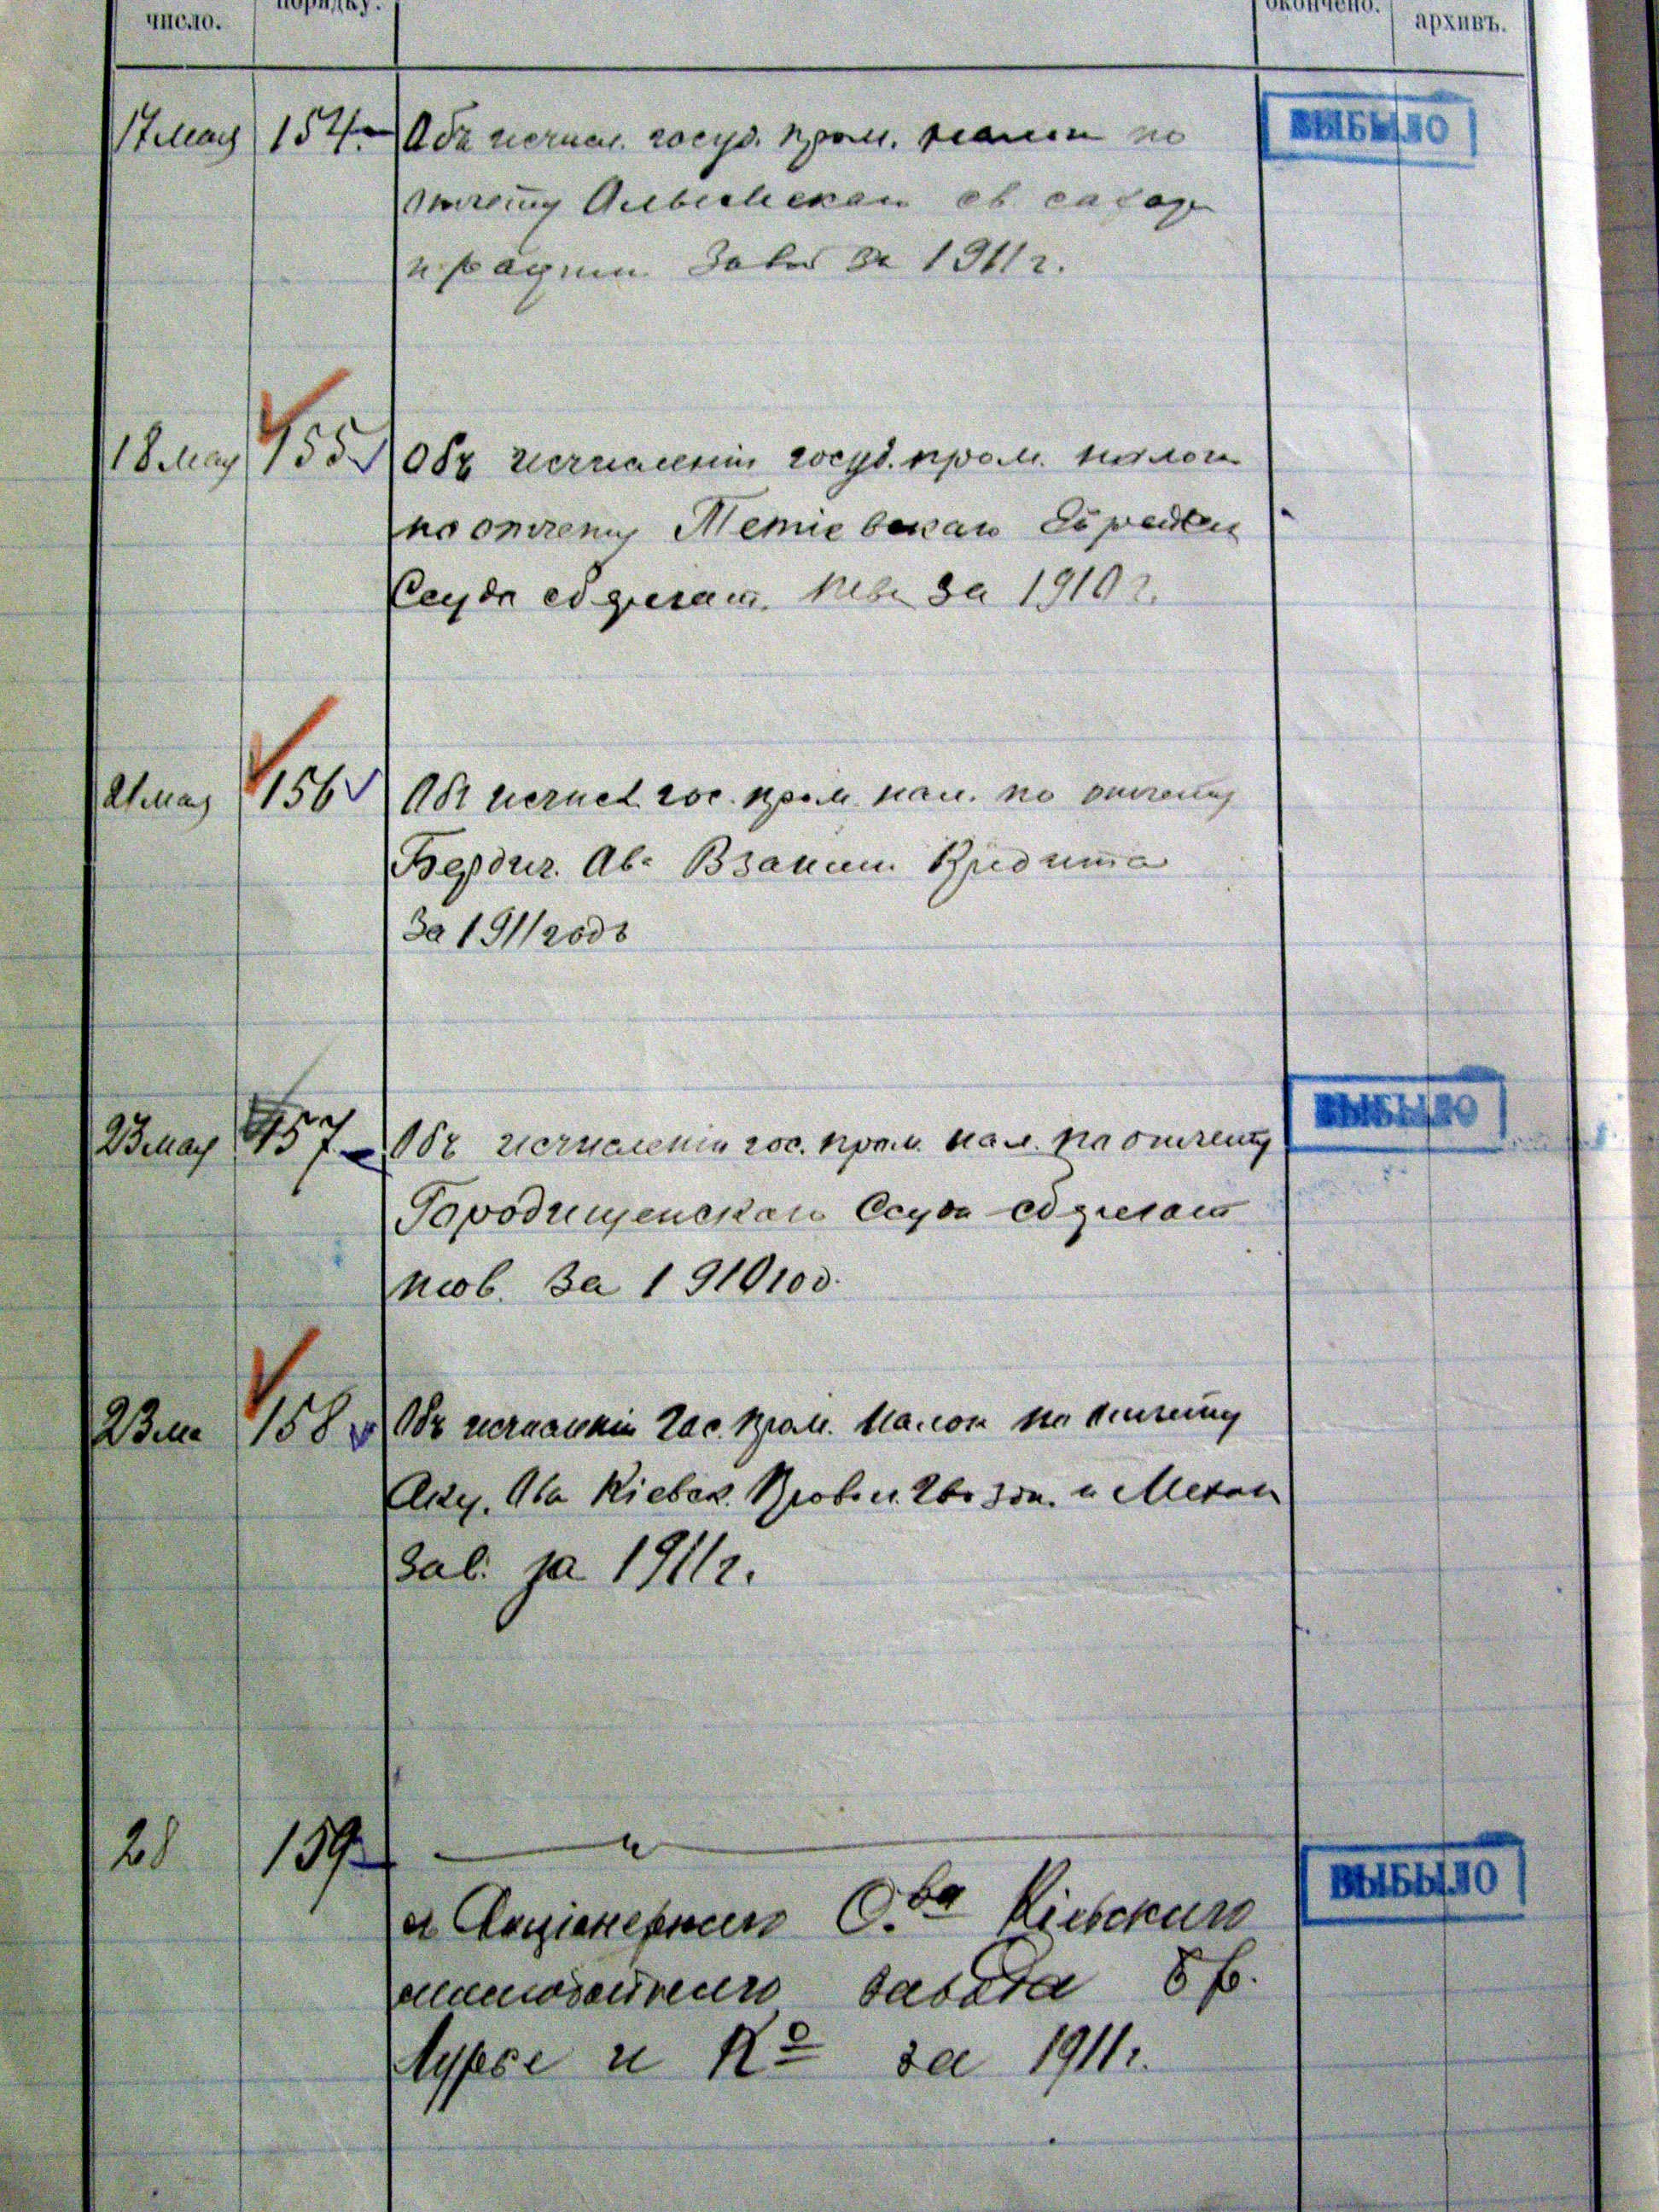 число. порядку. окончено. архивъ.
17 мая 154. Объ исчисл. госуд. пром. налога по ВЫБЫЛО
отчету св. сахар
и рафин. Зав. за 1911 г.
18 мая 155 Объ исчисленіи госуд. пром. налога
по отчету Тетіевскаго Еврейск
Ссудо сберегат. за 1910 г.
21 мая 156 Объ исчисл. гос. пром. нал. по отчету
Бердич. О-ва Взаимн. Кредита
за 1911 годъ
23 мая 157 Объ исчисленіи гос. пром. нал. по отчету ВЫБЫЛО
Городищенскаго Ссудо сберегат
тов. за 1910 год.
23 ма 158 Объ исчисленіи Гос. пром. Налога по отчету
Акц. О-ва Кіевск. Гвозд. и Механ
зав. за 1911 г.
28 159 — „ — ВЫБЫЛО
Акціонернаго О.ва Кіевскаго
завода б в.
Лурье и Кº за 1911 г.